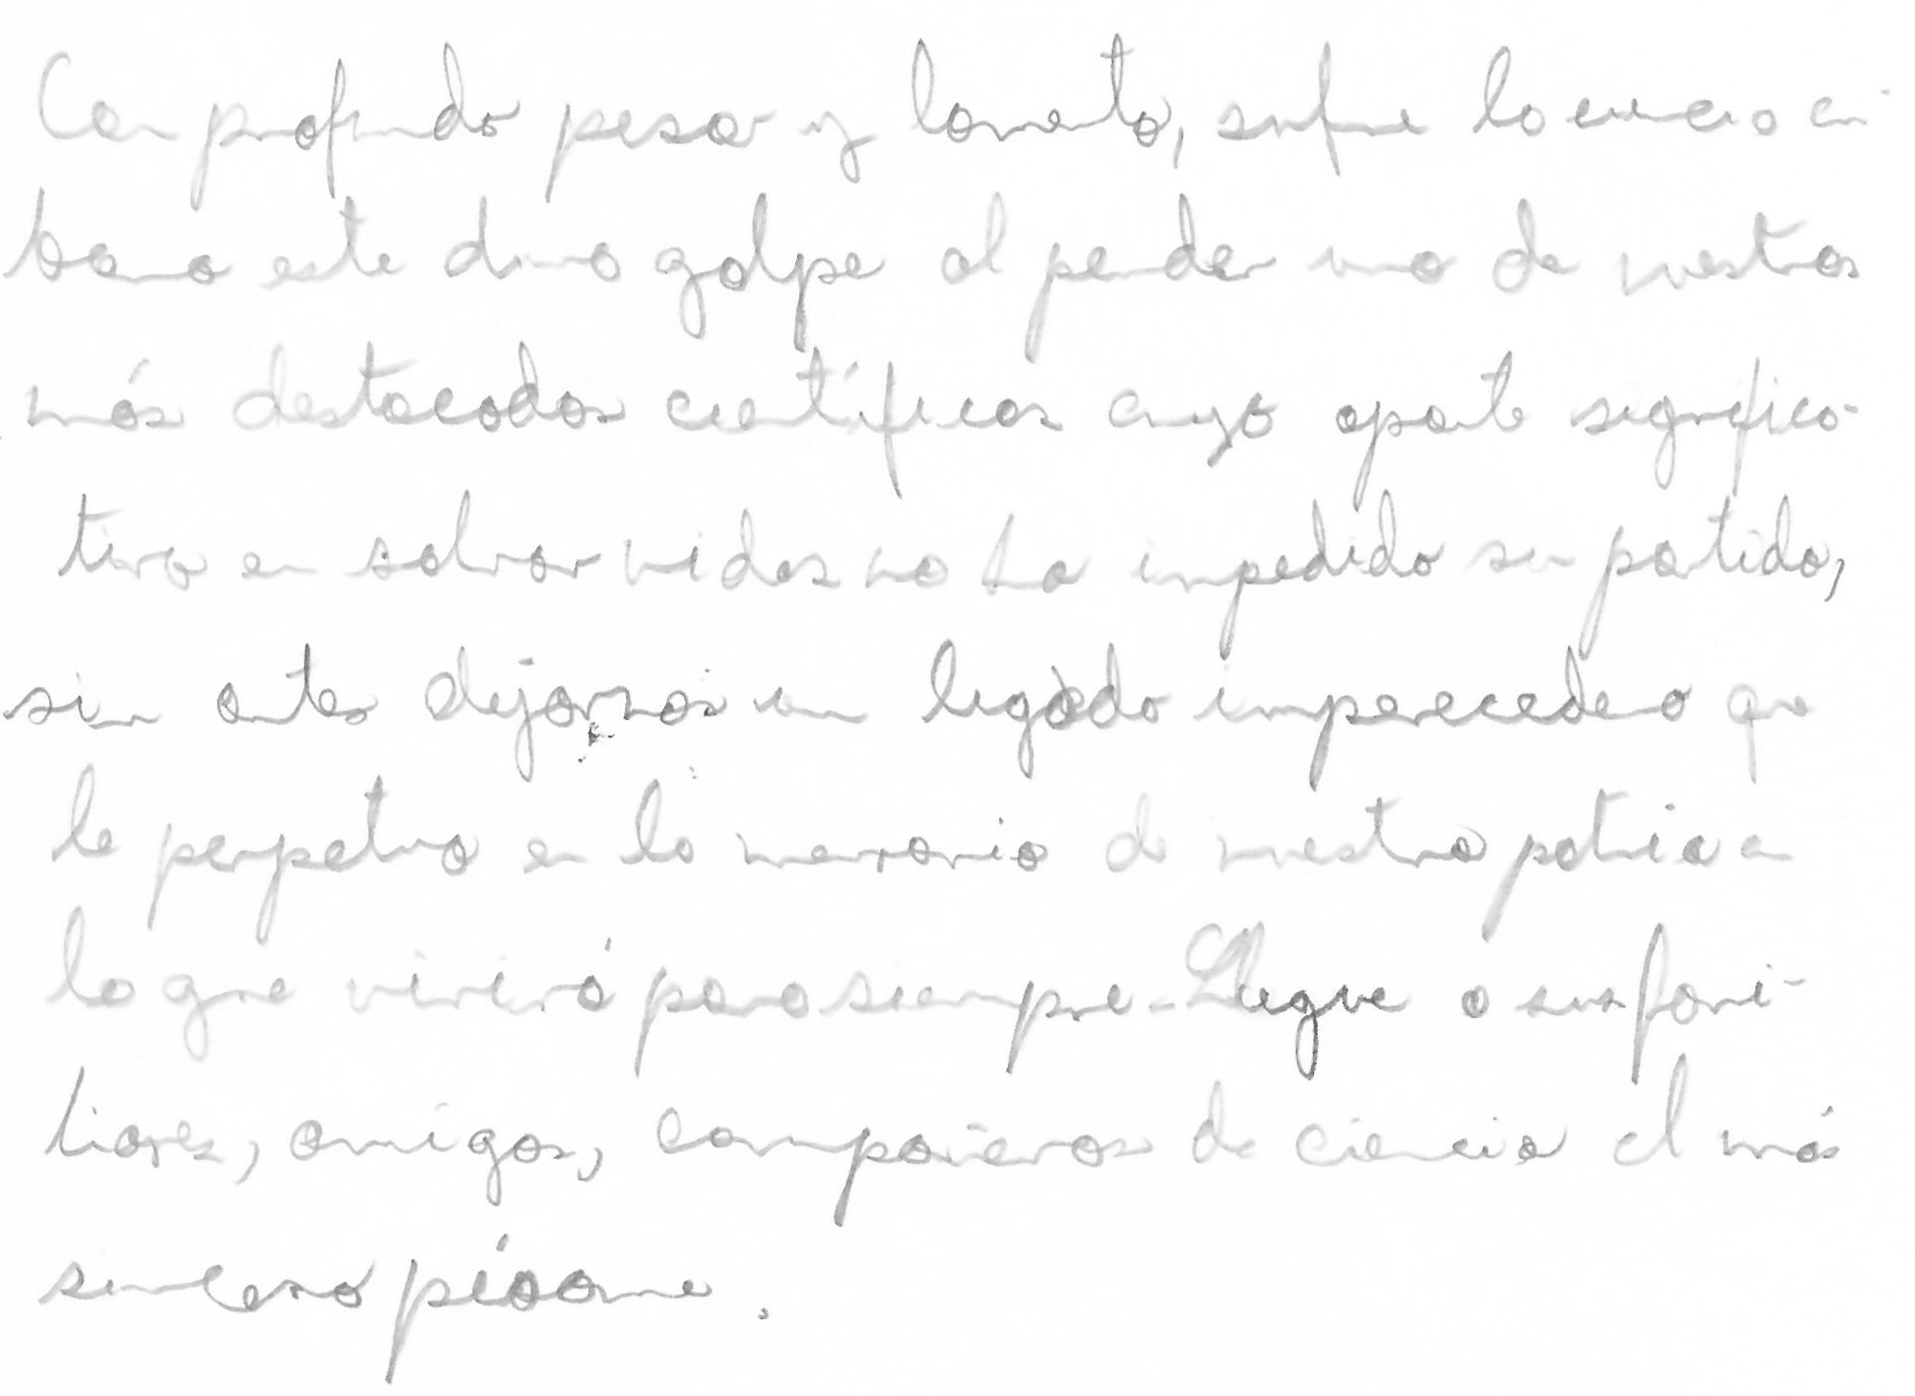 Con profundo pesar y lamento, sufre la ciencia cu-
bana este duro golpe al perder uno de nuestros
más destacados científicos cuyo aporte significa-
tivo en salvar vidas no ha impedido su partida,
sin antes dejarnos un legado imperecedero que
le perpetua en la memoria de nuestra patria en
la que vivirá para siempre. Llegue a sus fami-
liares, amigos, compañeros de ciencia el más
sincero pésame.